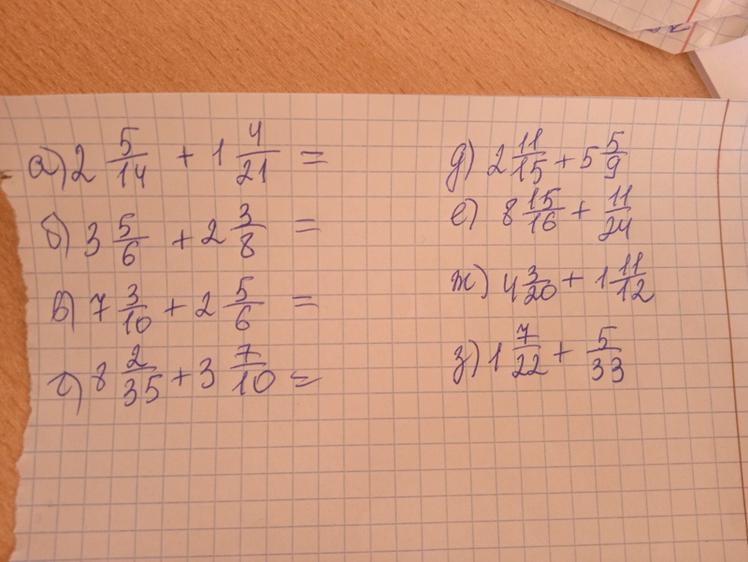 а) 2 5/14 + 1 4/21 =
б) 3 5/6 + 2 3/8 =
в) 7 3/10 + 2 5/6 =
г) 8 2/35 + 3 7/10 =
д) 2 11/15 + 5 5/9
е) 8 15/16 + 11/24
ж) 4 3/20 + 1 11/12
з) 1 7/22 + 5/33